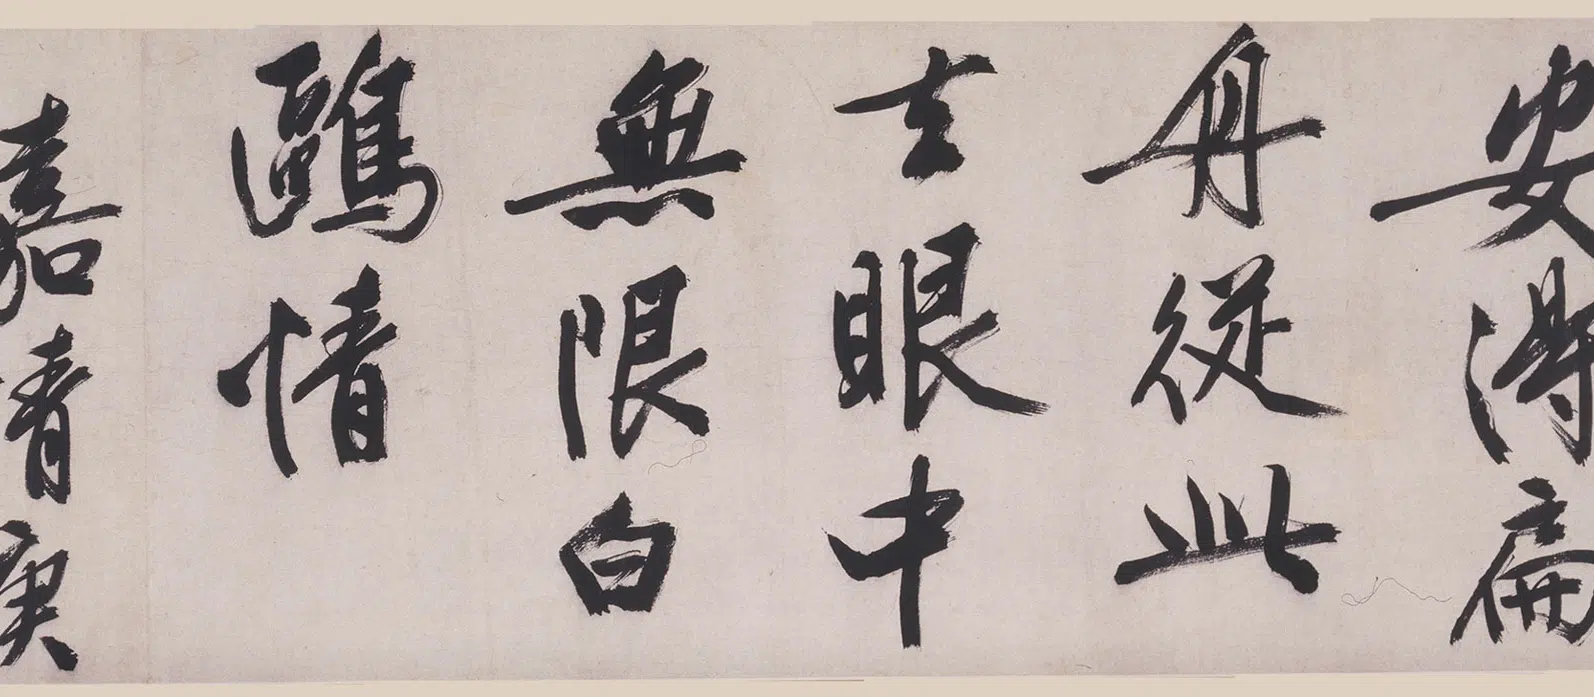 安得扁
舟從此
去眼中
無限白
鷗情
嘉靖庚